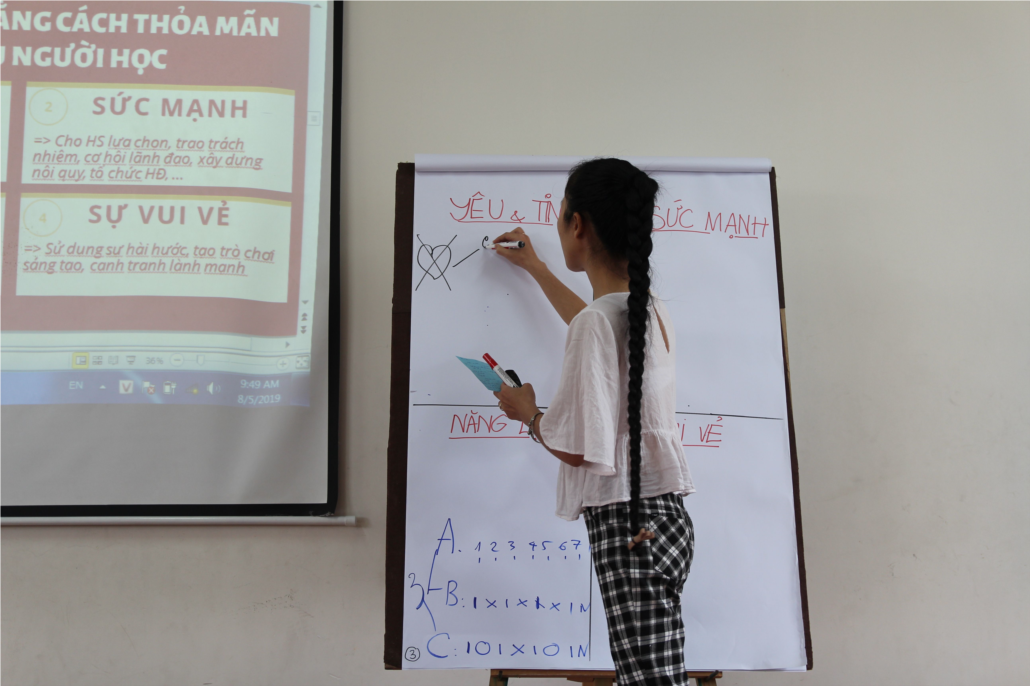 ẰNG CÁCH THỎA MÃN
U NGƯỜI HỌC
2
SỨC MẠNH
=> Cho HS lựa chọn, trao trách
nhiệm, cơ hội lãnh đạo, xây dựng
nội quy, tổ chức HĐ, ...
4
SỰ VUI VẺ
=> Sử dụng sự hài hước, tạo trò chơi
sáng tạo, cạnh tranh lành mạnh
36%
EN
V
9:49 AM
8/5/2019
YÊU & TÌN
SỨC MẠNH
NĂNG
I VẺ
3
A. 1 2 3 4 5 6 7
B: 1 X 1 X 1 X 1N
C: 101 X 10 1N
3